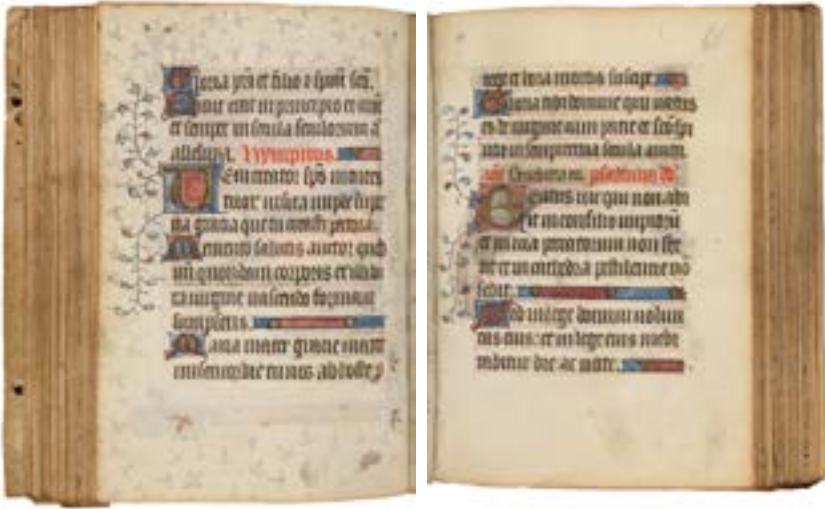 Gloria pri et filio & spui sco.
Sicut erat in principio et nuc
et semper in secula seculorum a
alleluya. Hympnus.
Veni creator sps mentes
tuor visita imple super
na gracia que tu creasti pectora.
Memento salutis auctor quod
nri quondam corporis ex illiba
ta virgine nascendo formam
sumpseris.
Maria mater gracie mater
misericordie tu nos ab hoste p
tege et hora mortis suscipe.
Gloria tibi domine qui natus
es de virgine cum patre et sco spi
ritu in sempiterna secula amen.
psalmus dd
Beatus vir qui non abi
it in consilio impioru
et in via peccatorum non ste
tit et in cathedra pestilencie no
sedit.
Sed in lege domini volun
tas eius: et in lege eius medi
tabitur die ac nocte.